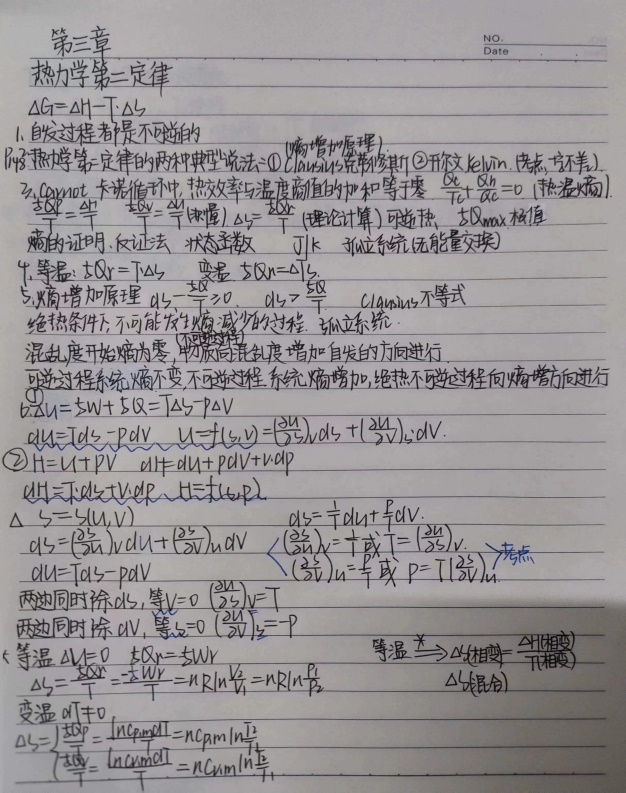 第三章
NO.
Date
热力学第二定律
ΔG=ΔH-T·ΔS
1.自发过程都是不可逆的
2.热力学第二定律的两种典型说法:①Clausius克劳修斯 (熵增加原理) ②开尔文Kelvin.(考点,写不差).
3.Carnot 卡诺循环中,热效率与温度商值的加和等于零 Qc/Tc+Qh/Qc=0 (热温熵)
δQp/T=ΔH/T δQv/T=ΔU/T ΔS=δQr/T (理论计算)可逆热. δQmax.极值
熵的证明.反证法 状态函数 J/K 孤立系统(无能量交换)
4.等温:δQr=T·ΔS 变温 δQn=ΔTS.
5.熵增加原理 dS-δQ/T≥0. dS>δQ/T Clausius不等式
绝热条件下,不可能发生熵减少的过程. 孤立系统.
混乱度开始熵为零,物质向混乱度增加自发的方向进行.
(不可逆过程)
可逆过程系统,熵不变,不可逆过程,系统熵增加,绝热不可逆过程向熵增方向进行
6.①ΔU=δW+δQ=TΔS-PΔV
dU=TdS-PdV U=f(S,V)=(∂U/∂S)v dS+(∂U/∂V)s·dV.
②H=U+PV dH=dU+PdV+V·dP
dH=T·dS+V·dP H=f(S,P)
Δ S=S(U,V) dS=1/T dU+P/T dV.
dS=(∂S/∂U)v dU+(∂S/∂V)u dV (∂S/∂U)v=1/T或T=(∂U/∂S)v.
dU=TdS-PdV (∂S/∂V)u=P/T或 P=T(∂S/∂V)u 考点
两边同时除dS,等V=0 (∂U/∂S)v=T
两边同时除dV,等S=0 (∂U/∂V)s=-P
等温 ΔU=0 δQr=δWr 等温 ⟹ ΔS(相变)=ΔH(相变)/T(相变)
ΔS=δQr/T=-δWr/T=nRln V2/V1=nRln P1/P2 ΔS(混合)
变温 dT≠0
ΔS={δQp/T=∫nCp,mdT/T=nCp,m ln T2/T1
δQv/T=∫nCv,mdT/T=nCv,m ln T2/T1